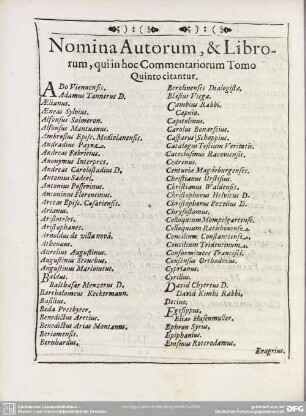 Nomina Autorum, & Libro-
rum, qui in hoc Commentariorum Tomo
Quinto citantur.
ADo Viennensis.
Adamus Tannerus D.
Ælianus.
Æneas Sylvius.
Alfonsus Salmeron.
Alfonsus Mantuanus.
Ambrosius Episc. Mediolanensis.
Andradius Payva.
Andreas Fabricius.
Anonymus Interpret.
Andreas Carolostadius D.
Antonius Sadeel.
Antonius Possevinus.
Antoninus Florentinus.
Aretas Episc. Cæsariensis.
Arianus.
Aristoteles.
Aristophanes.
Arnoldus de villa novâ.
Athenæus.
Aurelius Augustinus.
Augustinus Steuchus.
Augustinus Marloratus.
Baldus.
Balthasar Menzerus D.
Bartholomæus Keckermann.
Basilius.
Beda Presbyter.
Benedictus Aretius.
Benedictus Arias Montanus.
Bernardus.
Berolinenses Dialogistæ.
Blasius Viega.
Cambius Rabbi.
Capnio.
Capitolinus.
Carolus Bonarscius.
Casparus Schoppius.
Catalogus Testium Veritatis.
Catechismus Racoviensis.
Cedrenus.
Centuriæ Magdeburgenses.
Christianus Urstisius.
Christianus Waldensis.
Christophorus Helvicus D.
Christophorus Pezelius D.
Chrysostomus.
Colloquium Mompelgartense.
Colloquium Ratisbonense.
Concilium Constantiense.
Concilium Tridentinum.
Conformitates Francisci.
Consensus Orthodoxus.
Cyprianus.
Cyrillus.
David Chytreus D.
David Kimhi Rabbi.
Decius.
Egesippus.
Elias Hasenmuller.
Ephrem Syrus.
Epiphanius.
Erasmus Roterodamus.
Evagrius.